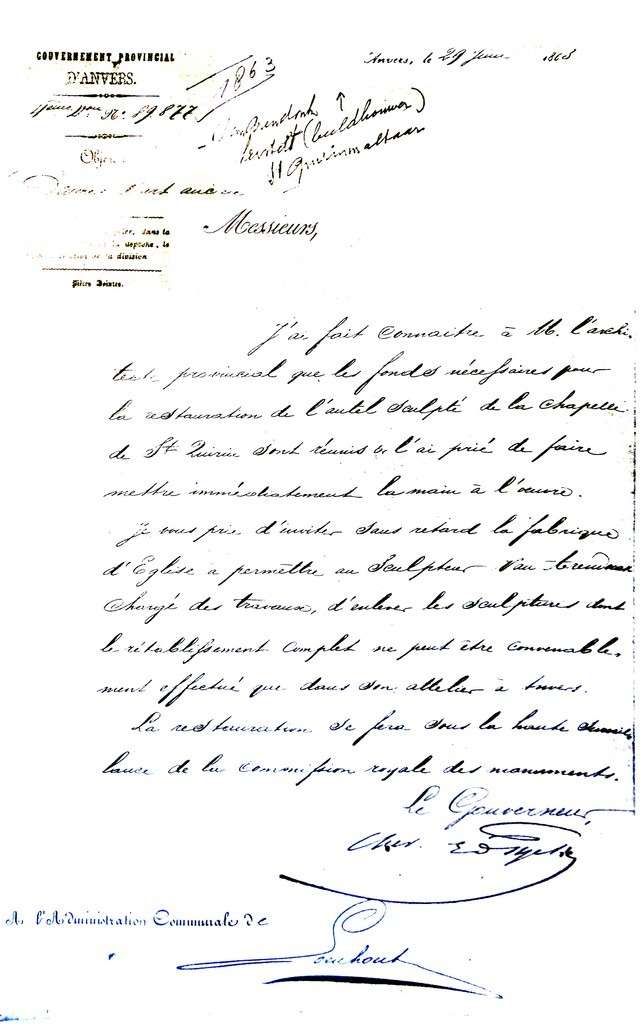 GOUVERNEMENT PROVINCIAL
D'ANVERS.
Anvers, le 29 Juin 1863
1863
Nº 89877
Objet
(beeldhouwer)
St
d'art
Messieurs,
dans la
depêche, le
de la division
J'ai fait connaitre à M. l'archi-
tecte provincial que les fonds nécessaires pour
la restauration de l'autel sculpté de la chapelle
de St Quirin sont réunis & l'ai prié de faire
mettre immédiatement la main à l'œuvre.
Je vous prie d'inviter sans retard la fabrique
d'Eglise a permettre au Sculpteur Van
chargé des travaux, d'enlever les sculptures dont
le rétablissement complet ne peut être convenable-
ment effectué que dans son attelier à Anvers.
La restauration se fera sous la haute surveil
lance de la commission royale des monuments.
Le Gouverneur,
Cher. E
A l'Administration Communale de
Loenhout